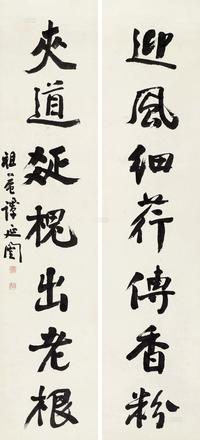 迎風細荇傳香粉
夾道疏槐出老根
祖菴譚延闓